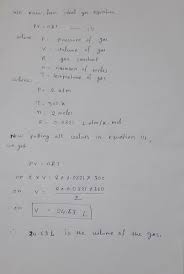 We know from ideal gas equation
PV = nRT — (i)
where P = pressure of gas
V = volume of gas
R = gas constant
n = number of moles
T = temperature of gas
where,
P = 2 atm
T = 300 K
n = 2 moles
R = 0.0821 L atm/K mol
Now putting all values in equation (i),
we get
PV = nRT
or 2 x V = 2 x 0.0821 x 300
or V = 2 x 0.0821 x 300
2
or V = 24.63 L
∴ 24.63 L is the volume of the gas.